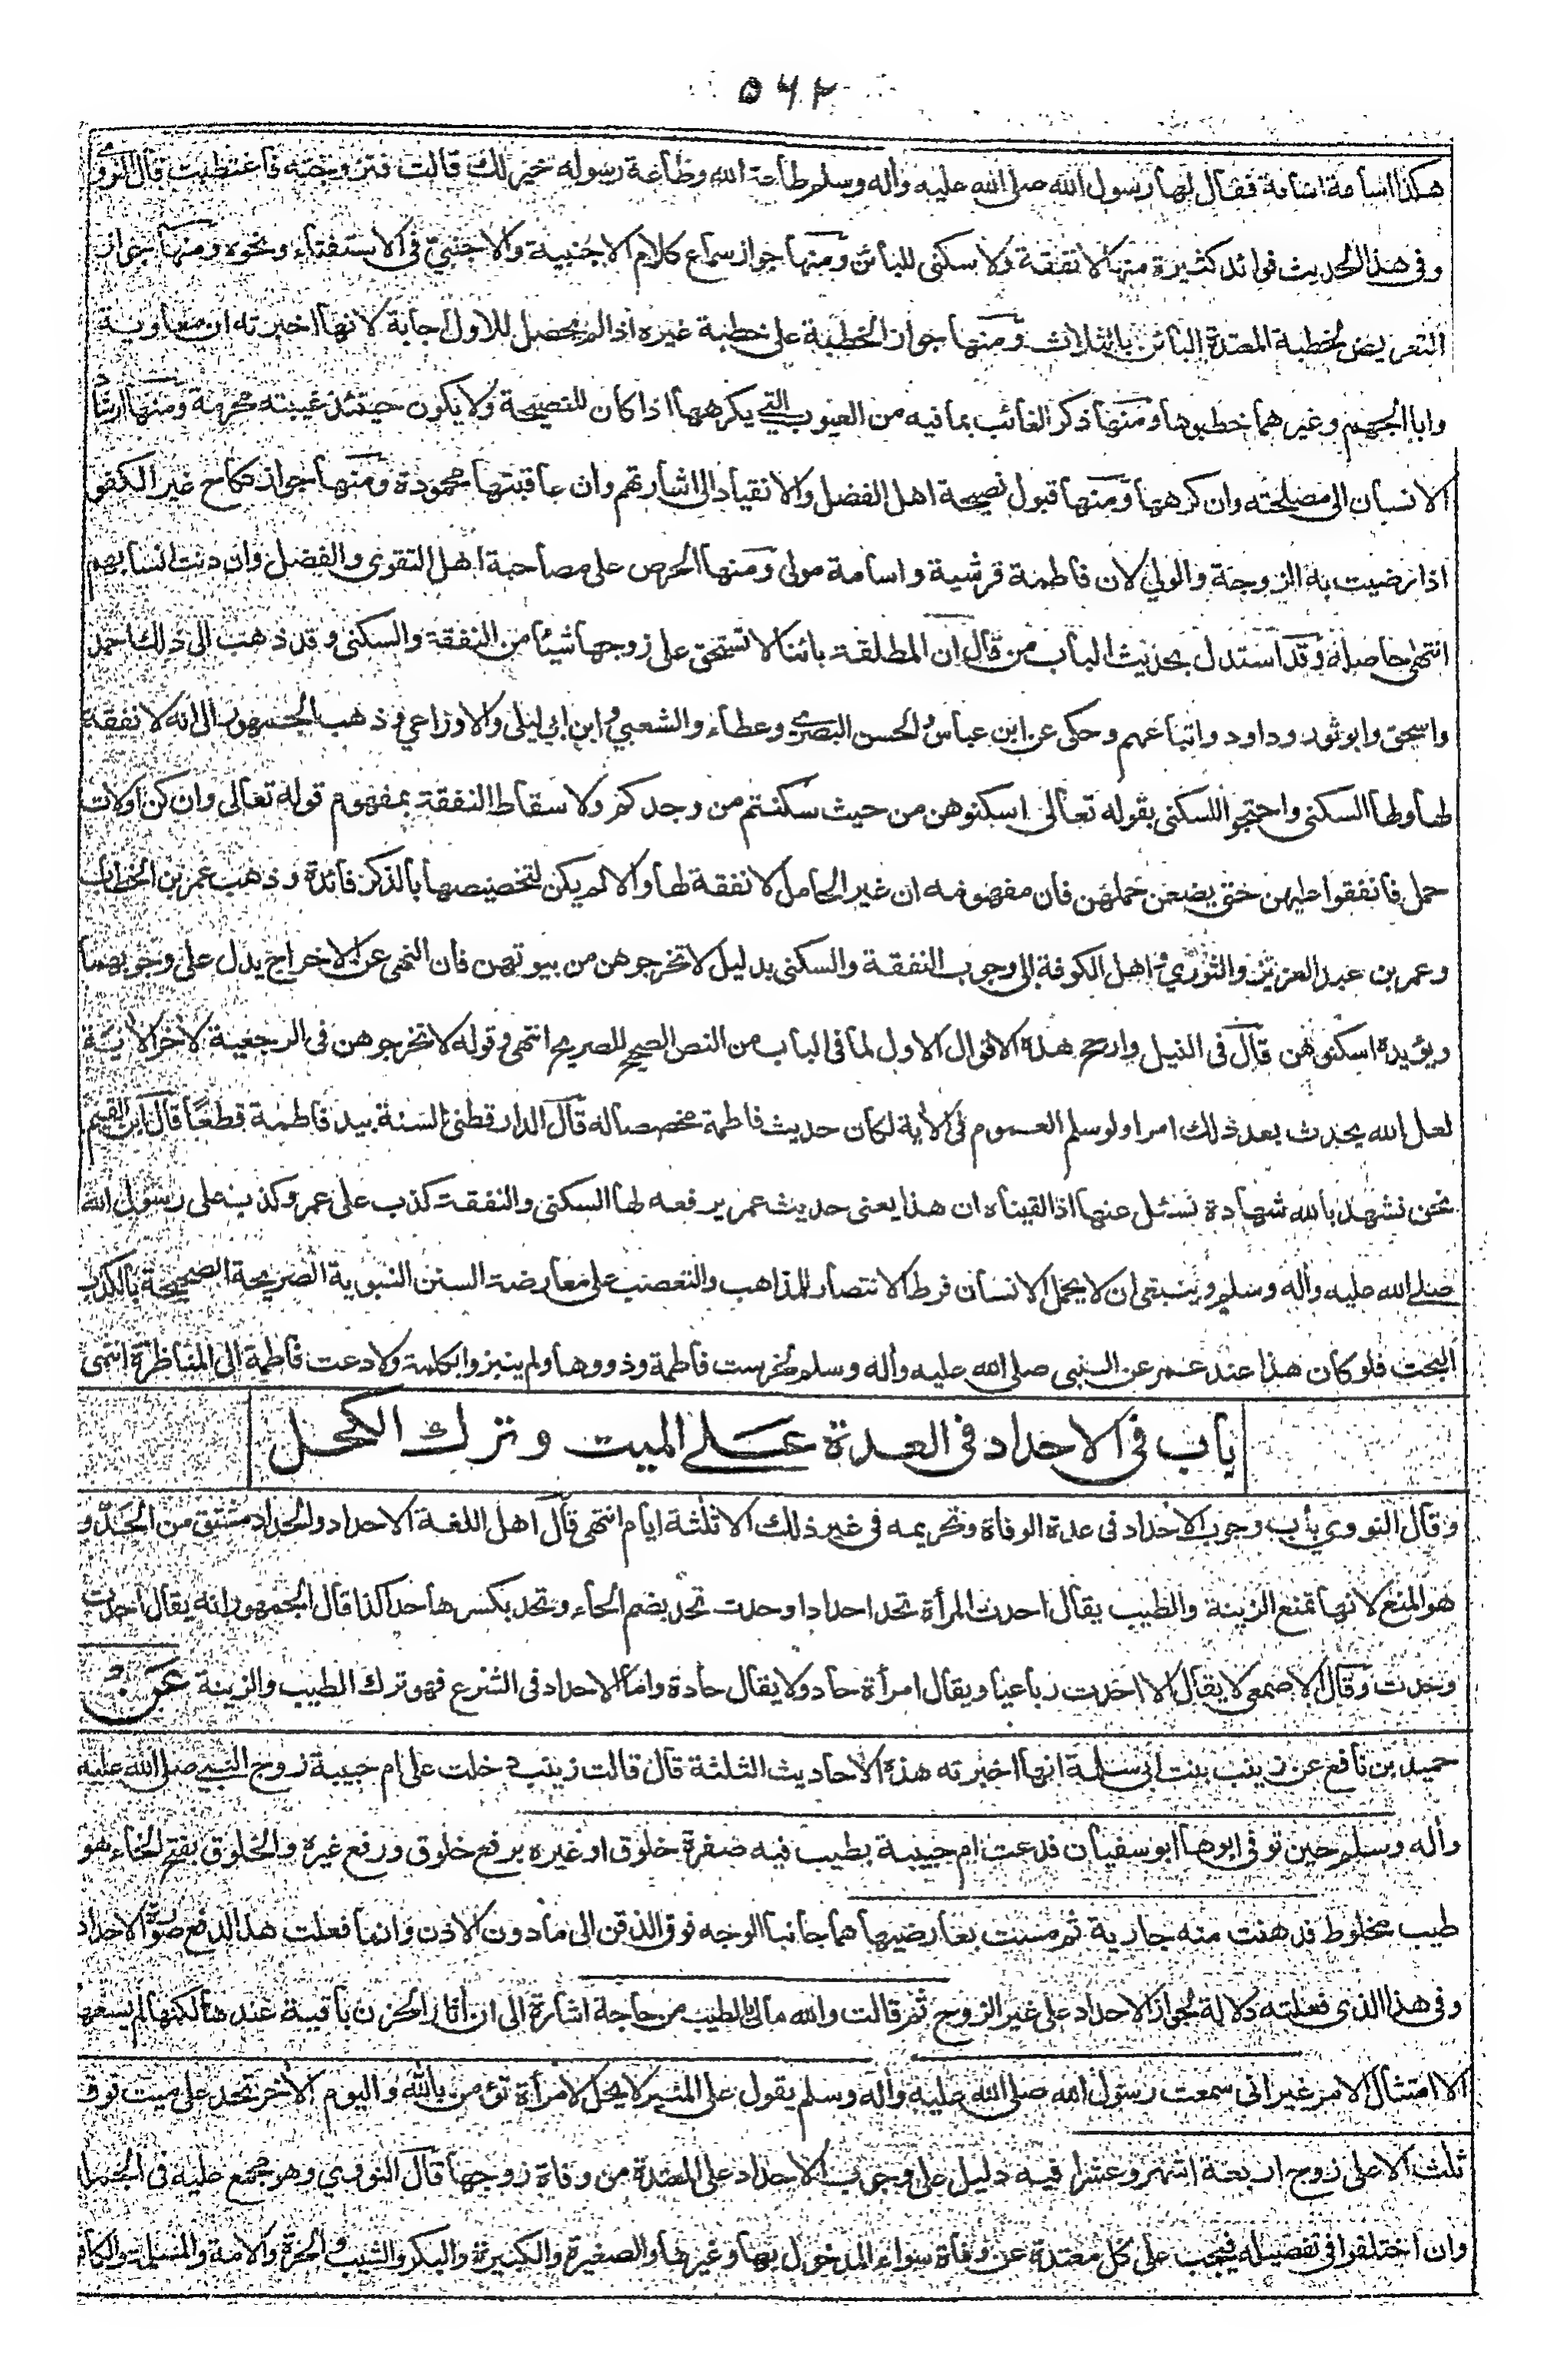 ٥٦٢
هكذا اسامة اسامة فقال لها رسول الله صلى الله عليه وأله وسلم طاعة الله وطاعة رسوله خير لك قالت فتزوجته فاغتبطت قال النووي
وفى هذا الحديث فوائد كثيرة منها لا نفقة ولا سكنى للبائن ومنها جواز سماع كلام الاجنبية والاجنبي فى الاستفتاء ونحوه ومنها جواز
التعريض لخطبة المعتدة البائن بالثلاث ومنها جواز الخطبة على خطبة غيره اذا لم يحصل للاول اجابة لانها اخبرته ان معاوية
وابا الجهم وغيرهما خطبوها ومنها ذكر الغائب بما فيه من العيوب التي يكرهها اذا كان للنصيحة ولا يكون حينئذ غيبته محرمة ومنها ارشاد
الانسان الى مصلحته وان كرهها ومنها قبول نصيحة اهل الفضل والانقياد الى اشارتهم وان عاقبتها محمودة ومنها جواز نكاح غير الكفو
اذا رضيت به الزوجة والولي لان فاطمة قرشية واسامة مولى ومنها الحرص على مصاحبة اهل التقوى والفضل وان دنت انسابهم
انتهى حاصله وقد استدل بحديث الباب من قال ان المطلقة بائنا لا تستحق على زوجها شيئا من النفقة والسكنى وقد ذهب الى ذلك احمد
واسحق وابو ثور وداود واتباعهم وحكى عن ابن عباس والحسن البصري وعطاء والشعبي وابن ابي ليلى والاوزاعي وذهب الجمهور الى انه لا نفقة
لها ولها السكنى واحتجوا للسكنى بقوله تعالى اسكنوهن من حيث سكنتم من وجدكم ولاسقاط النفقة بمفهوم قوله تعالى وان كن اولات
حمل فانفقوا عليهن حتى يضعن حملهن فان مفهومه ان غير الحامل لا نفقة لها والا لم يكن لتخصيصها بالذكر فائدة وذهب عمر بن الخطاب
وعمر بن عبد العزيز والثوري واهل الكوفة الى وجوب النفقة والسكنى بدليل لا تخرجوهن من بيوتهن فان النهى عن الاخراج يدل على وجوبهما
ويؤيده اسكنوهن قال فى النيل وارجح هذه الاقوال الاول لما فى الباب من النص الصحيح الصريح انتهى وقوله لا تخرجوهن فى الرجعية لاخر الأية
لعل الله يحدث بعد ذلك امرا ولو سلم العموم فى الأية لكان حديث فاطمة مخصصا له قال الدارقطنى السنة بيد فاطمة قطعا قال ابن القيم
نحن نشهد بالله شهادة نسئل عنها اذا لقيناه ان هذا يعنى حديث عمر يرفعه لها السكنى والنفقة كذب على عمر وكذب على رسول الله
صلى الله عليه وأله وسلم وينبغى ان لا يحمل الانسان فرط الانتصار للمذاهب والتعصب على معارضة السنن النبوية الصريحة الصحيحة بالكذب
البحت فلو كان هذا عند عمر عن النبى صلى الله عليه وأله وسلم لخرست فاطمة وذووها ولم ينبزوا بكلمة ولا دعت فاطمة الى المناظرة انتهى
باب فى الاحداد فى العدة على الميت وترك الكحل
وقال النووي باب وجوب الاحداد فى عدة الوفاة وتحريمه فى غير ذلك الا ثلثة ايام انتهى قال اهل اللغة الاحداد والحداد مشتق من الحد و
هو المنع لانها تمنع الزينة والطيب يقال احدت المرأة تحد احدادا وحدت تحد بضم الحاء وتحد بكسرها حدا كذا قال الجمهور انه يقال احدت
وحدت وقال الاصمعى لا يقال الا احدت رباعيا ويقال امرأة حاد ولا يقال حادة واما الاحداد فى الشرع فهو ترك الطيب والزينة عن
حميد بن نافع عن زينب بنت ابى سلمة انها اخبرته هذه الاحاديث الثلثة قال قالت زينب دخلت على ام حبيبة زوج النبي صلى الله عليه
وأله وسلم حين توفى ابوها ابو سفيان فدعت ام حبيبة بطيب فيه صفرة خلوق او غيره برفع خلوق ورفع غيره والخلوق بفتح الخاء هو
طيب مخلوط فدهنت منه جارية ثم مست بعارضيها هما جانبا الوجه فوق الذقن الى ما دون الاذن وانما فعلت هذا لدفع صورة الاحداد
وفى هذا الذى فعلته دلالة لجواز الاحداد على غير الزوج ثم قالت والله مالى بالطيب من حاجة اشارة الى ان أثار الحزن باقية عندها لكنها لم يسعها
الا امتثال الامر غير انى سمعت رسول الله صلى الله عليه وأله وسلم يقول على المنبر لا يحل لامرأة تؤمن بالله واليوم الأخر تحد على ميت فوق
ثلث الا على زوج اربعة اشهر وعشرا فيه دليل على وجوب الاحداد على المعتدة من وفاة زوجها قال النووي وهو مجمع عليه فى الجملة
وان اختلفوا فى تفصيله فيجب على كل معتدة عن وفاة سواء المدخول بها وغيرها والصغيرة والكبيرة والبكر والثيب والحرة والامة والمسلمة والكافرة